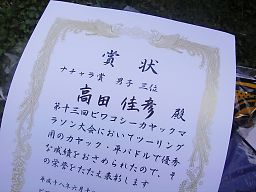 賞状
ナチャラ賞 男子 三位
高田 佳彦 殿
第十三回ビワコシーカヤックマ
ラソン大会においてツーリング
用のカヤック・平パドルで優秀
な成績をおさめられたので、そ
の栄誉をたたえ表彰します
平成十八年六月十